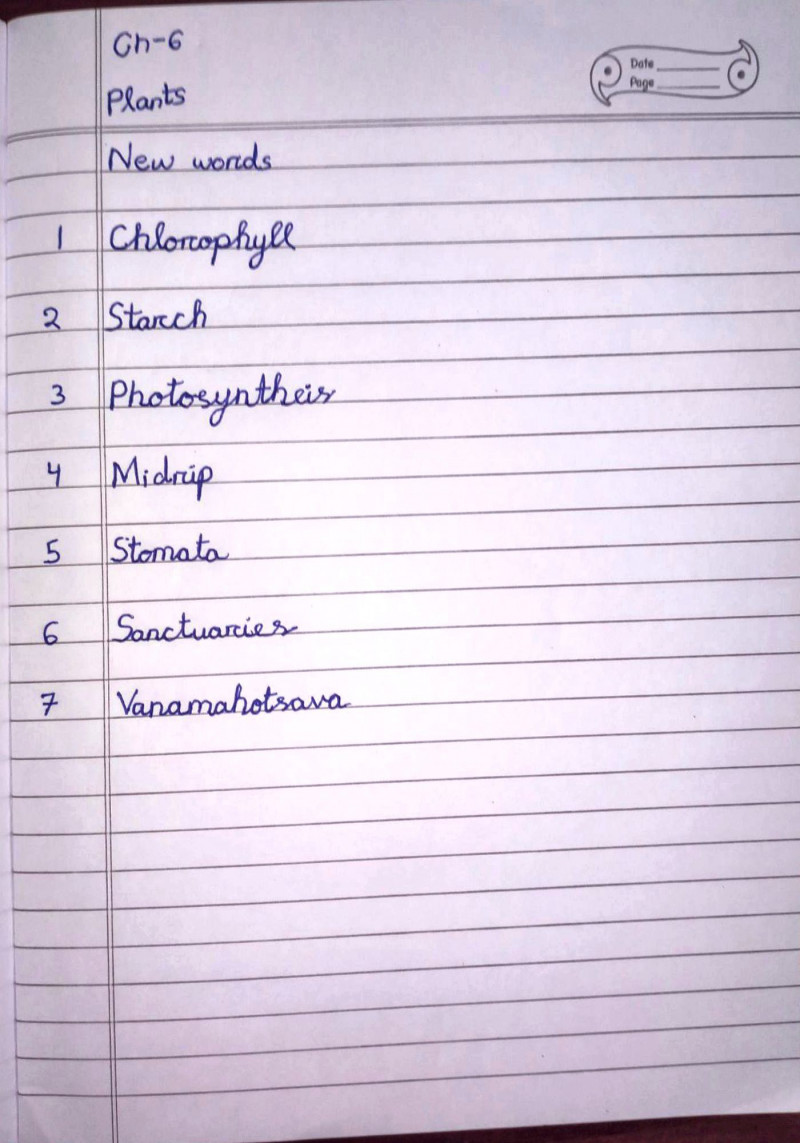 Ch-6
Date
Page
Plants
New words
1 Chlorophyll
2 Starch
3 Photosyntheis
4 Midrip
5 Stomata
6 Sanctuaries
7 Vanamahotsava